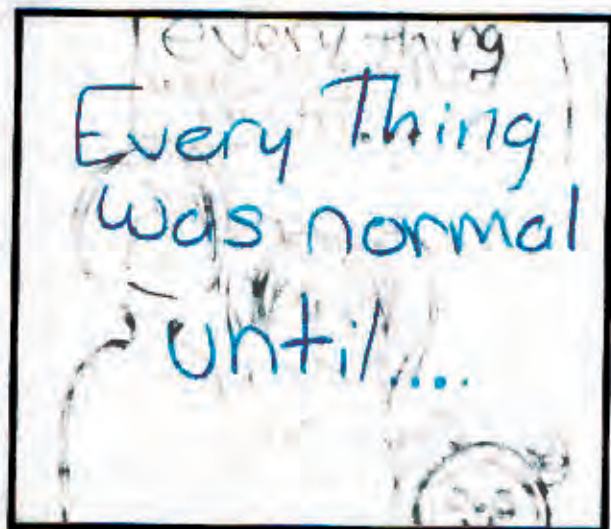 every thing
Every Thing
was normal
until....